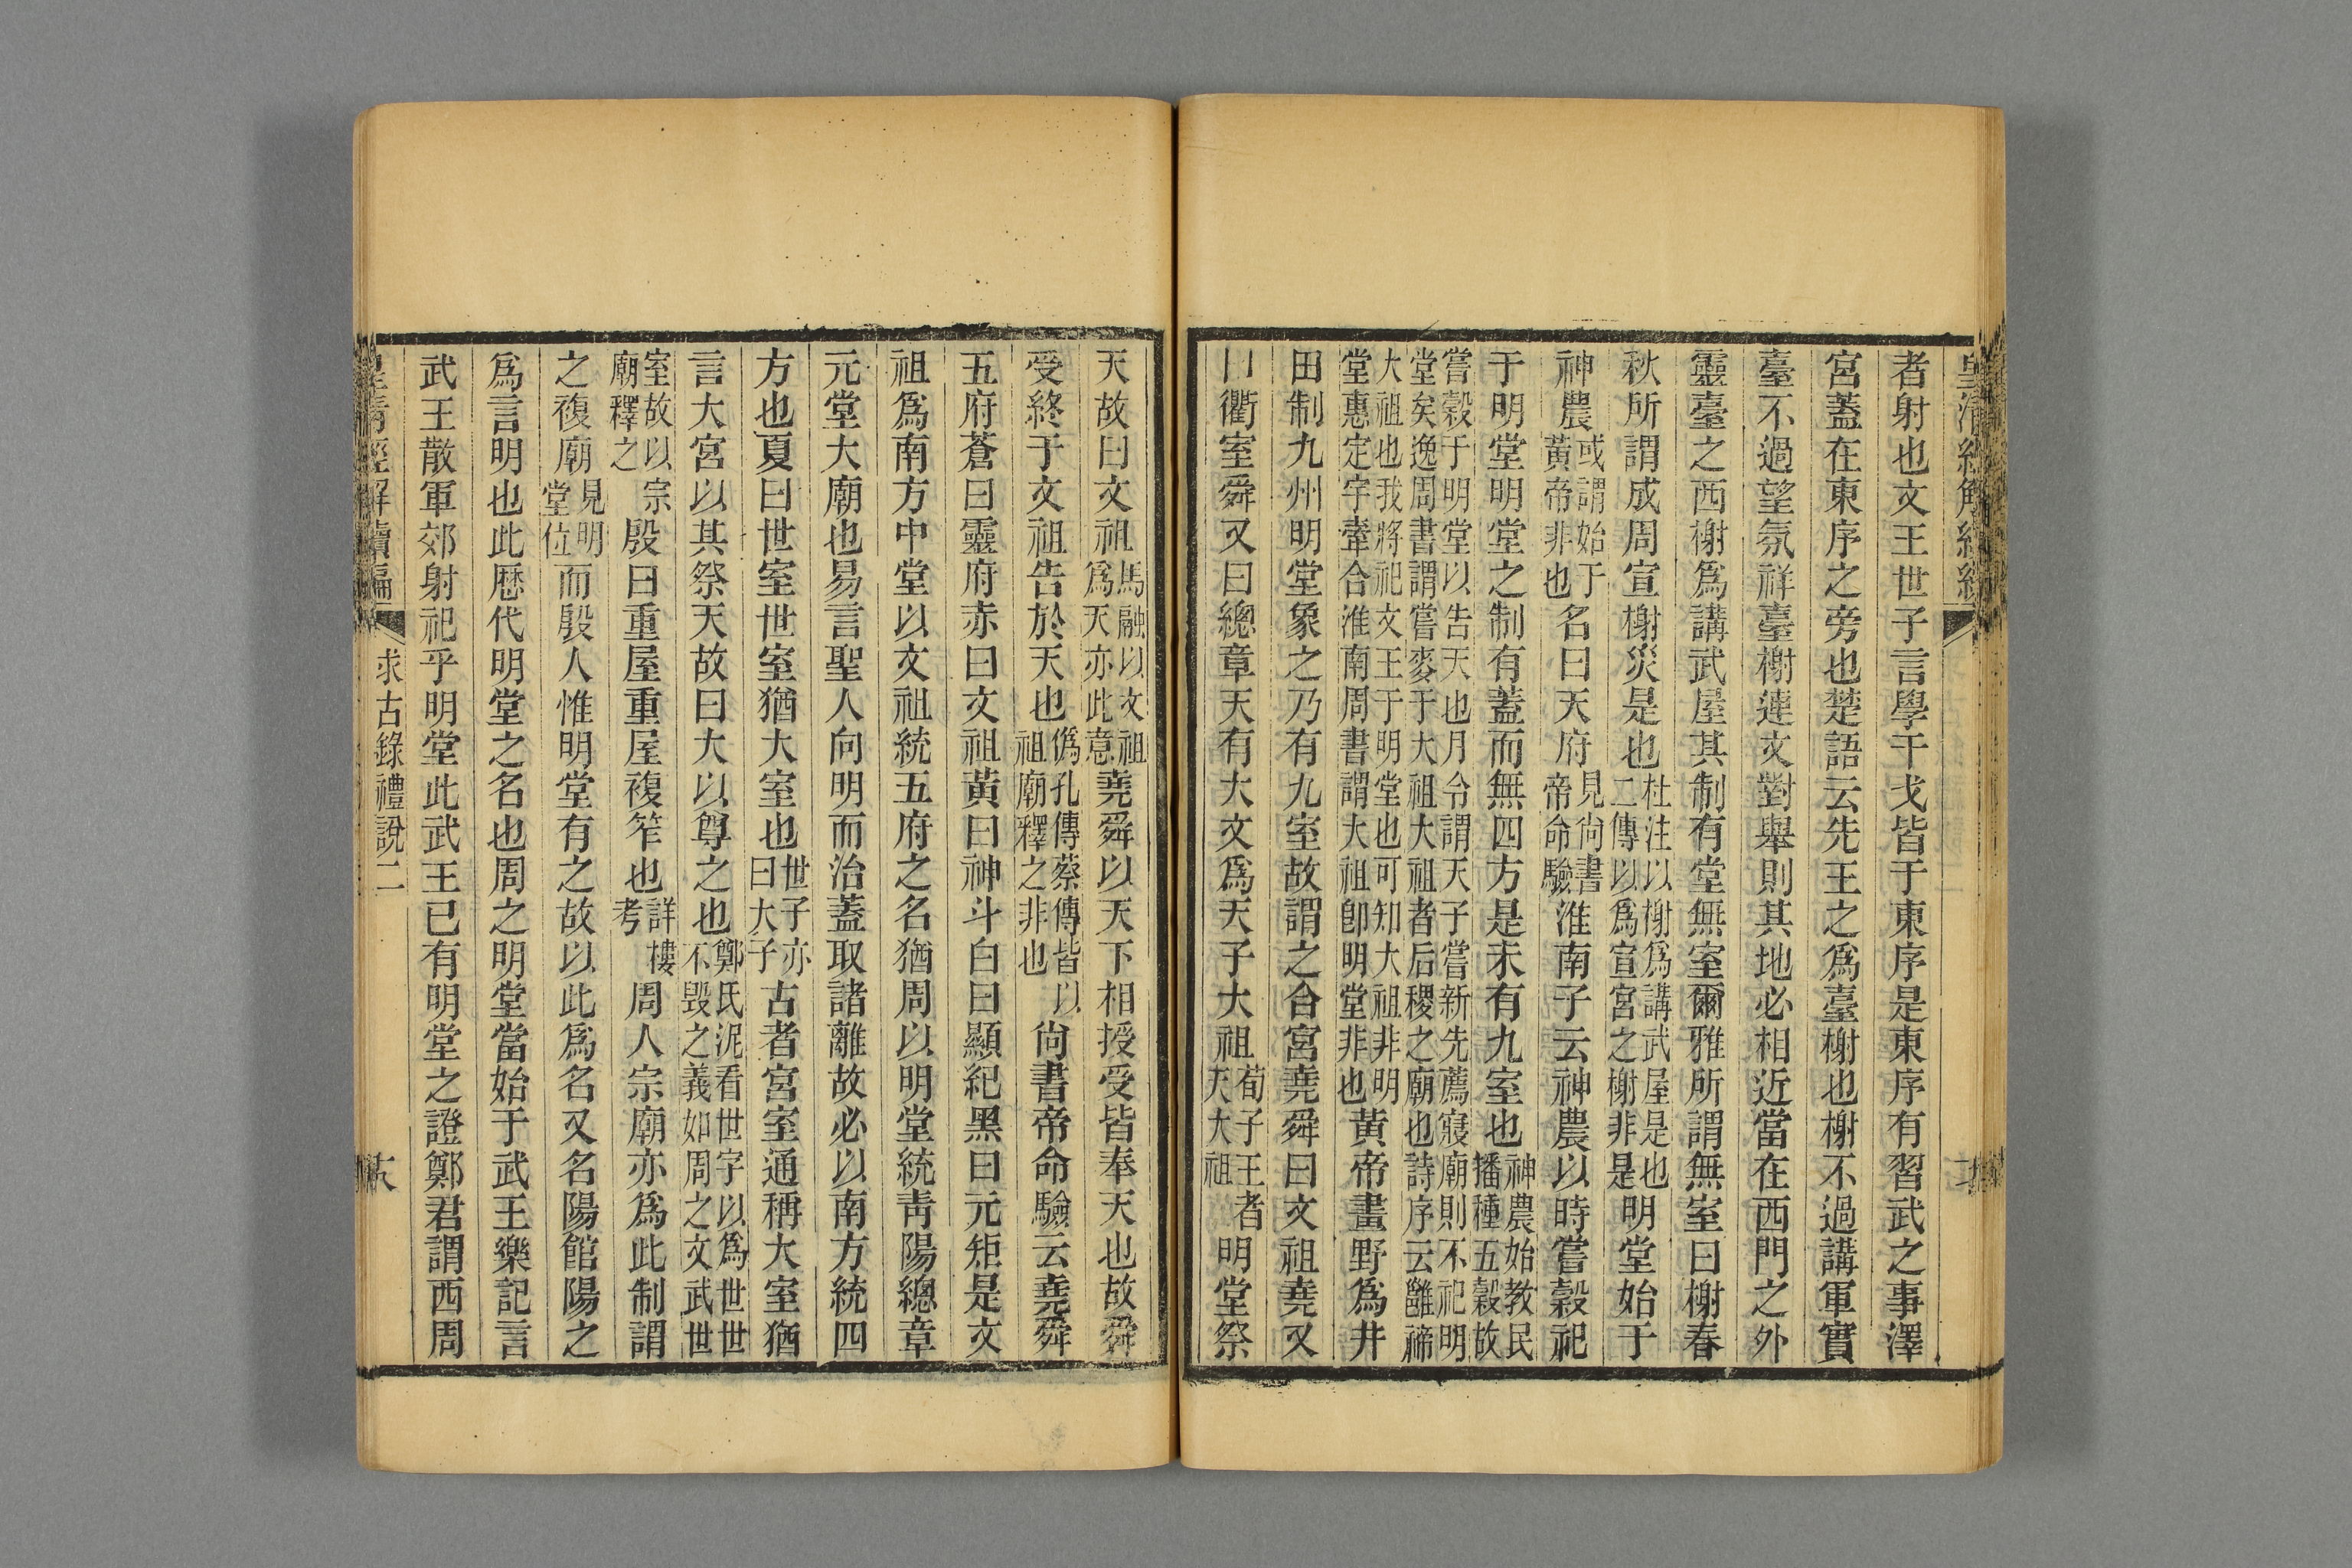 者射也文王世子言學干戈皆于東序是東序有習武之事澤
宮蓋在東序之旁也楚語云先王之爲臺榭也榭不過講軍實
臺不過望氛祥臺榭連文對舉則其地必相近當在西門之外
靈臺之西榭爲講武屋其制有堂無室爾雅所謂無室曰榭春
秋所謂成周宣榭災是也杜注以榭爲講武屋是也二傳以爲宣宮之榭非是明堂始于
神農或謂始于黃帝非也名曰天府見尚書帝命驗淮南子云神農以時嘗穀祀
于明堂明堂之制有蓋而無四方是未有九室也神農始教民播種五穀故
嘗穀于明堂以告天也月令謂天子嘗新先薦寢廟則不祀明堂矣逸周書謂嘗麥于大祖大祖者后稷之廟也詩序云雝禘
大祖也我將祀文王于明堂也可知大祖非明堂惠定宇牽合淮南周書謂大祖卽明堂非也黃帝畫野爲井
田制九州明堂象之乃有九室故謂之合宮堯舜曰文祖堯又
曰衢室舜又曰總章天有大文爲天子大祖荀子王者天大祖明堂祭
天故曰文祖馬融以文祖爲天亦此意堯舜以天下相授受皆奉天也故舜
受終于文祖告於天也僞孔傳蔡傳皆以祖廟釋之非也尚書帝命驗云堯舜
五府蒼曰靈府赤曰文祖黃曰神斗白曰顯紀黑曰元矩是文
祖爲南方中堂以文祖統五府之名猶周以明堂統青陽總章
元堂大廟也易言聖人向明而治蓋取諸離故必以南方統四
方也夏曰世室世室猶大室也世子亦曰大子古者宮室通稱大室猶
言大宮以其祭天故曰大以尊之也鄭氏泥看世字以爲世世不毀之義如周之文武世
室故以宗廟釋之殷曰重屋重屋複笮也詳樓考周人宗廟亦爲此制謂
之複廟見明堂位而殷人惟明堂有之故以此爲名又名陽館陽之
爲言明也此歷代明堂之名也周之明堂當始于武王樂記言
武王散軍郊射祀乎明堂此武王已有明堂之證鄭君謂西周
皇清經解續編
求古錄禮說二